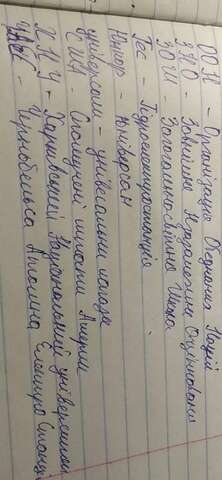 ООН - Організація Обєднаних Націй
ЗНО - Зовнішнє Незалежне Оцінювання
ЗОШ - Загальноосвітня Школа
Гес - Гідроелектростанція
Юнівор - Юніверсал
універсам - універсальні магазин
США - Сполучені штати Амери
ХНУ - Харківський Національний університет
ЧАЕС - Чернобильська Атомна Електро Станці